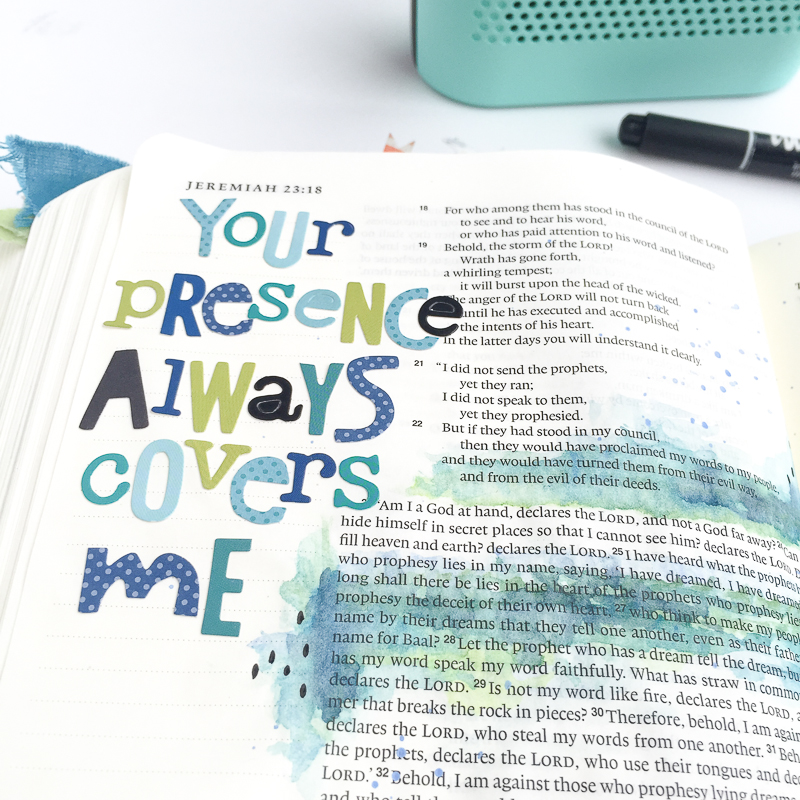 JEREMIAH 23:18
YOUr
pResENCe
AlWayS
cOVerS
mE
18 For who among them has stood in the council of the LORD
to see and to hear his word,
or who has paid attention to his word and listened?
19 Behold, the storm of the LORD!
Wrath has gone forth,
a whirling tempest;
it will burst upon the head of the wicked.
The anger of the LORD will not turn back
until he has executed and accomplished
the intents of his heart.
In the latter days you will understand it clearly.
21 “I did not send the prophets,
yet they ran;
I did not speak to them,
yet they prophesied.
22 But if they had stood in my council,
then they would have proclaimed my words to my people,
and they would have turned them from their evil way,
and from the evil of their deeds.
“Am I a God at hand, declares the LORD, and not a God far away? 24 Can
hide himself in secret places so that I cannot see him? declares the LORD.
fill heaven and earth? declares the LORD. 25 I have heard what the prophets
who prophesy lies in my name, saying, ‘I have dreamed, I have dreamed
long shall there be lies in the heart of the prophets who prophesy lies
prophesy the deceit of their own heart, 27 who think to make my people
name by their dreams that they tell one another, even as their fathers
name for Baal? 28 Let the prophet who has a dream tell the dream, but
has my word speak my word faithfully. What has straw in common
declares the LORD. 29 Is not my word like fire, declares the LORD,
mer that breaks the rock in pieces? 30 Therefore, behold, I am again
declares the LORD, who steal my words from one another. 31 Beh
the prophets, declares the LORD, who use their tongues and dec
LORD.’ 32 Behold, I am against those who prophesy lying dreams
and who tell